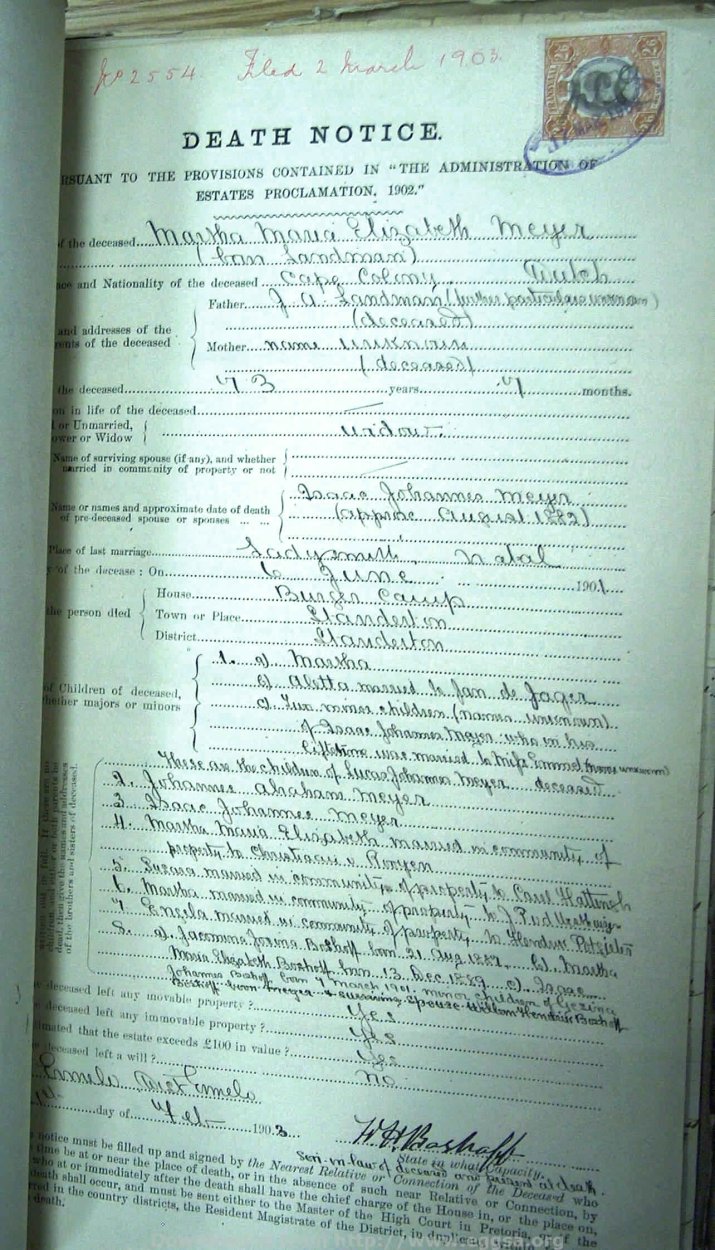 No 2554 Filed 2 March 1903.
DEATH NOTICE.
RSUANT TO THE PROVISIONS CONTAINED IN "THE ADMINISTRATION OF
ESTATES PROCLAMATION, 1902."
of the deceased Martha Maria Elizabeth Meyer
(born Landman)
and Nationality of the deceased Cape Colony Dutch
Father J A Landman (further particulars unknown)
(deceased)
and addresses of the
of the deceased
Mother name unknown
(deceased)
the deceased 73 years 7 months.
in life of the deceased
or Unmarried,
ower or Widow
widow
Name of surviving spouse (if any), and whether
married in community of property or not
Isaac Johannes Meyer
Name or names and approximate date of death
of pre-deceased spouse or spouses
(approx August 1882)
Place of last marriage Ladysmith, Natal
of the decease : On 6 June 1901.
House Burger Camp
the person died Town or Place Standerton
District Standerton
1. a) Martha
b) Aletta married to Jan de Jager
of Children of deceased,
whether majors or minors
c) Two minor children (names unknown)
of Isaac Johannes Meyer who in his
lifetime was married to Miss
These are the children of Lucas Johannes Meyer deceased
2. Johannes Abraham Meyer
3. Isaac Johannes Meyer
4. Martha Maria Elizabeth married in community of
property to Christiaan v Rooyen
5. Susara married in community of property to Carel Hattingh
6. Martha married in community of property to J P v d Westhuizen
7. Engela married in community of property to Hendrik
8. a) Jacomina Josina Boshoff born 21 Aug 1887, b) Martha
Maria Elizabeth Boshoff born 13 Dec 1889 c) Isaac
Johannes Boshoff born 7 March 1901. minor children of Gezina
Boshoff born Meyer & surviving spouse Willem Hendrik Boshoff
dead, then give the names and addresses
of the brothers and sisters of deceased.
deceased left any movable property ? Yes
deceased left any immovable property ? Yes
that the estate exceeds £100 in value ? Yes
deceased left a will ? No
Ermelo Dist Ermelo
day of Feb 1903.
W H Boshoff
State in what Capacity.
Son-in-law of deceased and present at death.
notice must be filled up and signed by the Nearest Relative or Connection of the Deceased who
time be at or near the place of death, or in the absence of such near Relative or Connection, by
who at or immediately after the death shall have the chief charge of the House in, or the place on,
death shall occur, and must be sent either to the Master of the High Court in Pretoria, of the
in the country districts, the Resident Magistrate of the District, in duplicate
death.
http://www.eggsa.org